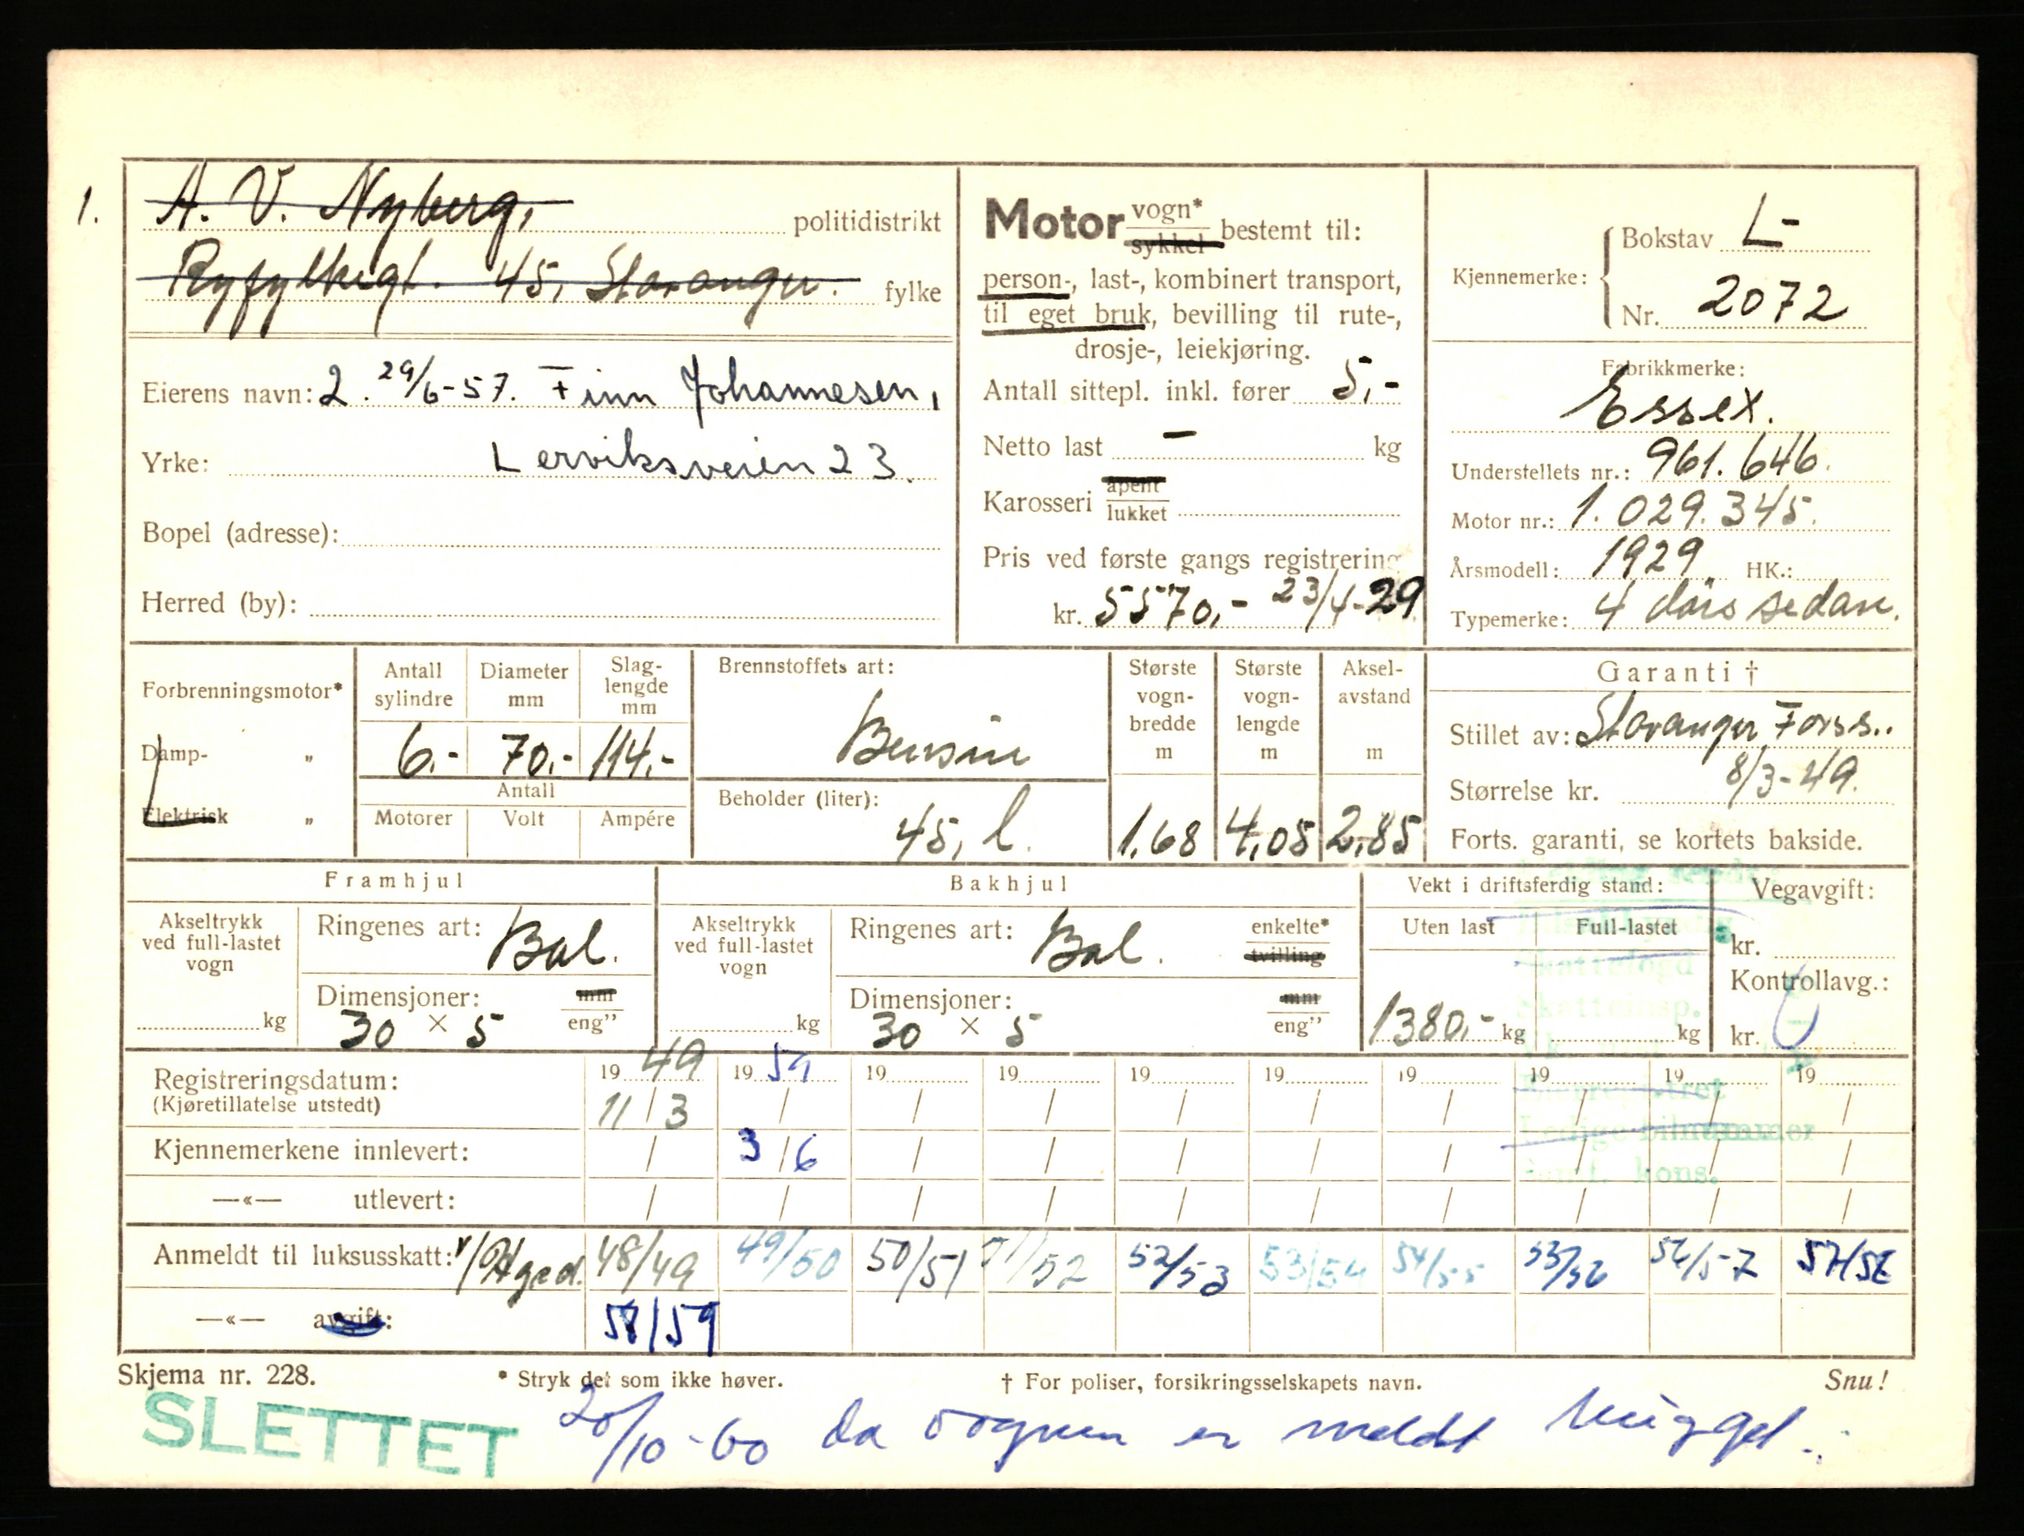 1. A. V. Nyberg, politidistrikt
Ryfylkegt. 45, Stavanger. fylke
Eierens navn: 2. 29/6-57. Finn Johannesen,
Yrke: Lerviksveien 23.
Bopel (adresse):
Herred (by):
Motor vogn* sykkel bestemt til:
person-, last-, kombinert transport,
til eget bruk, bevilling til rute-,
drosje-, leiekjøring.
Antall sittepl. inkl. fører 5,-
Netto last - kg
Karosseri åpent lukket
Pris ved første gangs registrering
kr. 5570,- 23/4-29
Kjennemerke: Bokstav L-
Nr. 2072
Fabrikkmerke:
Essex.
Understellets nr.: 961.646.
Motor nr.: 1.029.345.
Årsmodell: 1929 HK.:
Typemerke: 4 dørs sedan.
Forbrenningsmotor*
Damp- „
Elektrisk „
Antall sylindre
Diameter mm
Slag-lengde mm
6.- 70.- 114.-
Antall
Motorer Volt Ampére
Brennstoffets art:
Bensin
Beholder (liter):
45, l.
Største vogn-bredde m
1,68
Største vogn-lengde m
4,05
Aksel-avstand m
2,85
Garanti †
Stillet av: Stavanger Forss..
Størrelse kr. 8/3-49.
Forts. garanti, se kortets bakside.
Framhjul
Akseltrykk ved full-lastet vogn
kg
Ringenes art: Bal.
Dimensjoner: mm
30 × 5 eng"
Bakhjul
Akseltrykk ved full-lastet vogn
kg
Ringenes art: Bal. enkelte* tvilling
Dimensjoner: mm
30 × 5 eng"
Vekt i driftsferdig stand:
Uten last Full-lastet
1380,- kg kg
Vegavgift:
kr.
Kontrollavg.:
kr.
skatteinsp.
kons.
Registreringsdatum: 19 49 19 59 19 19 19 19 19 19 19 19
(Kjøretillatelse utstedt) 11/3 / / / / / / / / /
Kjennemerkene innlevert: / 3/6 / / / / / / / /
—«— utlevert: / / / / / / / / / /
Anmeldt til luksusskatt: 48/49 49/50 50/51 51/52 52/53 53/54 54/55 55/56 56/57 57/58
—«— avgift: 58/59
Skjema nr. 228. * Stryk det som ikke høver. † For poliser, forsikringsselskapets navn. Snu!
SLETTET 20/10-60 da vognen er meldt hugget.